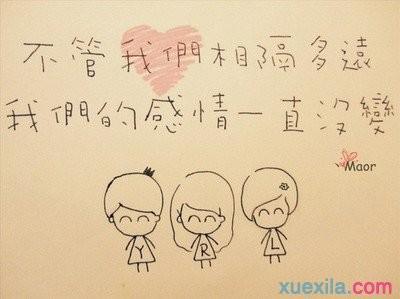 不管我們相隔多遠
我們的感情一直沒變
Maor
Y R L
xuexila.com